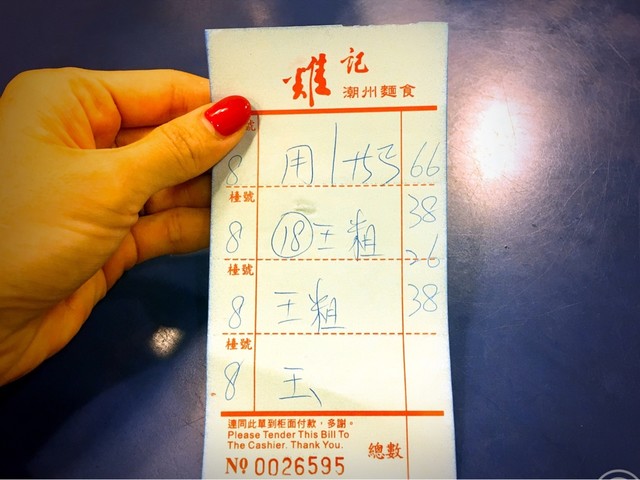 雞記
潮州麵食
號
8 用 1 66
檯號
8 ⑱ 王粗 38
26
檯號
8 王粗 38
檯號
8
連同此單到柜面付款，多謝。
Please Tender This Bill To
The Cashier. Thank You.
總數
№ 0026595